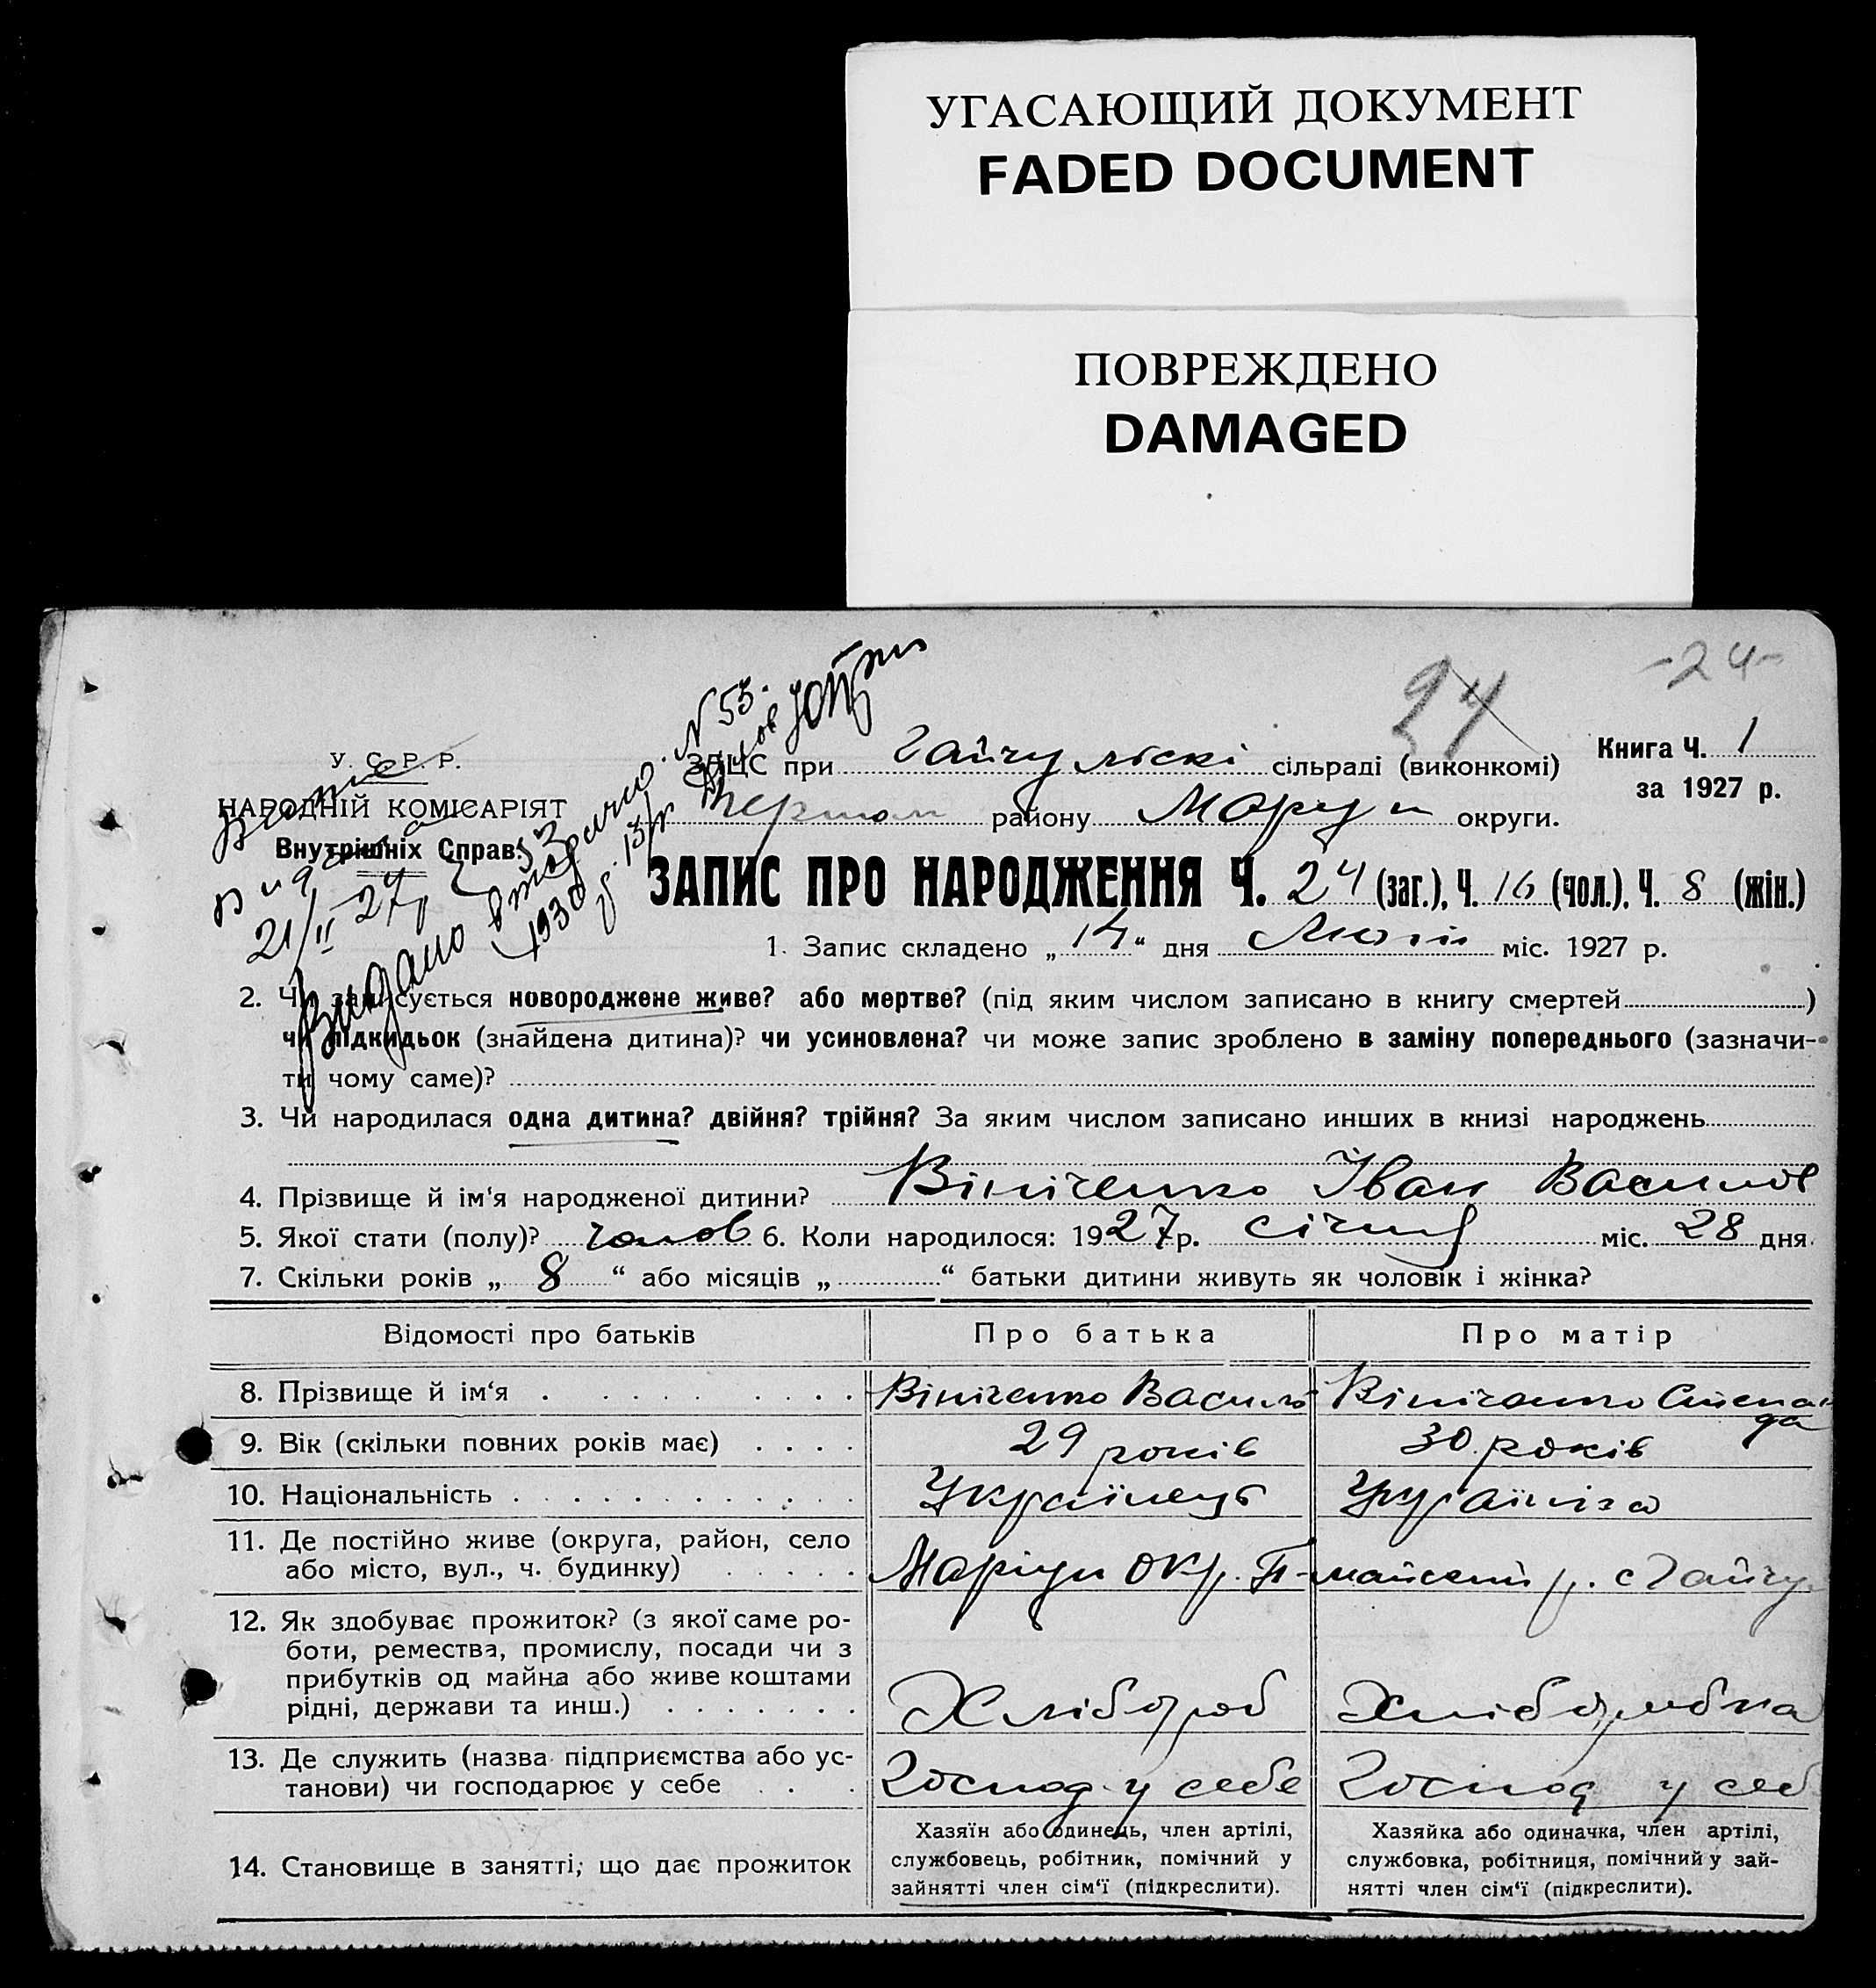 УГАСАЮЩИЙ ДОКУМЕНТ
FADED DOCUMENT
ПОВРЕЖДЕНО
DAMAGED
-24-
24
У. С. Р. Р.
НАРОДНІЙ КОМІСАРІЯТ
Внутрішніх Справ
видана
21/II 27р
Видано вторично N 53
1930 р.
ЗАЦС при Гайчулскі сільраді (виконкомі)
Книга Ч. 1
за 1927 р.
району Маріуп округи.
ЗАПИС ПРО НАРОДЖЕННЯ Ч. 24 (заг.), Ч. 16 (чол.), Ч. 8 (жін.)
1. Запис складено „14“ дня міс. 1927 р.
2. Чи записується новороджене живе? або мертве? (під яким числом записано в книгу смертей )
чи підкидьок (знайдена дитина)? чи усиновлена? чи може запис зроблено в заміну попереднього (зазначи-
ти чому саме)?
3. Чи народилася одна дитина? двійня? трійня? За яким числом записано инших в книзі народжень
4. Прізвище й ім‘я народженої дитини? Вініченко Іван Васильов
5. Якої стати (полу)? чолов 6. Коли народилося: 1927 р. січня міс. 28 дня
7. Скільки років „ 8 “ або місяців „ “ батьки дитини живуть як чоловік і жінка?
Відомості про батьків Про батька Про матір
8. Прізвище й ім‘я Вініченко Василь Вініченко Степанида
9. Вік (скільки повних років має) 29 років 30 років
10. Національність Українець Українка
11. Де постійно живе (округа, район, село
або місто, вул., ч. будинку) Маріуп окр. П-майський р. с Гайчул
12. Як здобуває прожиток? (з якої саме ро-
боти, ремества, промислу, посади чи з
прибутків од майна або живе коштами
рідні, держави та инш.) Хлібороб Хліборобка
13. Де служить (назва підприємства або ус-
танови) чи господарює у себе Господ у себе Господ у себ
14. Становище в занятті, що дає прожиток
Хазяїн або одинець, член артілі,
службовець, робітник, помічний у
зайнятті член сім‘ї (підкреслити).
Хазяйка або одиначка, член артілі,
службовка, робітниця, помічний у зай-
нятті член сім‘ї (підкреслити).